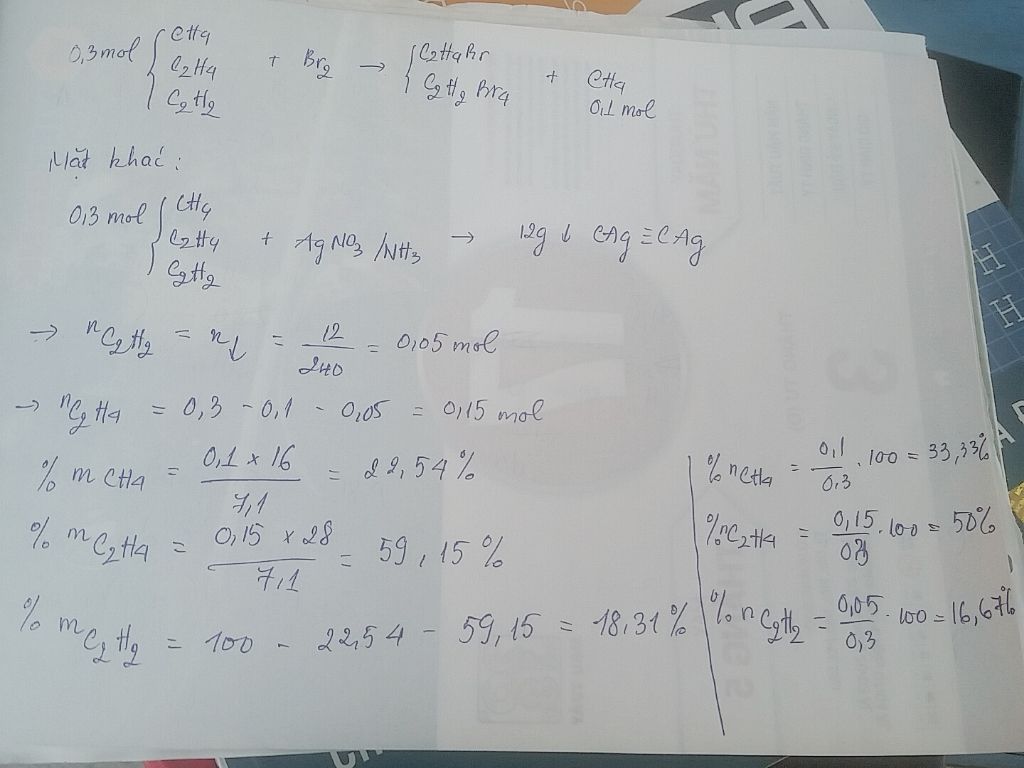 0,3 mol { CH4 C2H4 C2H2 + Br2 → { C2H4Br C2H2Br4 + CH4 0,1 mol
Mặt khác:
0,3 mol { CH4 C2H4 C2H2 + AgNO3/NH3 → 12g ↓ CAg ≡ CAg
→ nC2H2 = n↓ = 12/240 = 0,05 mol
→ nC2H4 = 0,3 - 0,1 - 0,05 = 0,15 mol
% m CH4 = 0,1 x 16 / 7,1 = 22,54 %
% m C2H4 = 0,15 x 28 / 7,1 = 59,15 %
% m C2H2 = 100 - 22,54 - 59,15 = 18,31 %
% n CH4 = 0,1/0,3 . 100 = 33,33%
% n C2H4 = 0,15/0,3 . 100 = 50%
% n C2H2 = 0,05/0,3 . 100 = 16,67%